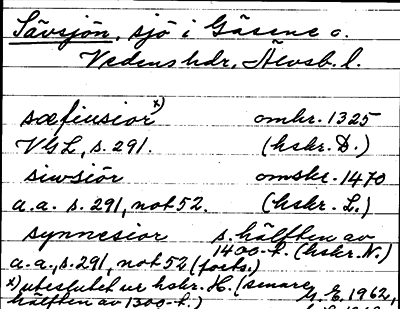 Sävsjön, sjö i Gäsene o.
Vedens hdr, Älvsb. l.
sæfiusior x) omkr. 1325
VGL, s. 291. (hskr. D.)
siwsiör omskr. 1470
a.a. s. 291, not 52. (hskr. L.)
synnesior s. hälften av
1400-t. (hskr. N.)
a.a., s. 291, not 52 (forts.)
x) uteslutet ur hskr. H. (senare
hälften av 1300-t.) 1962,